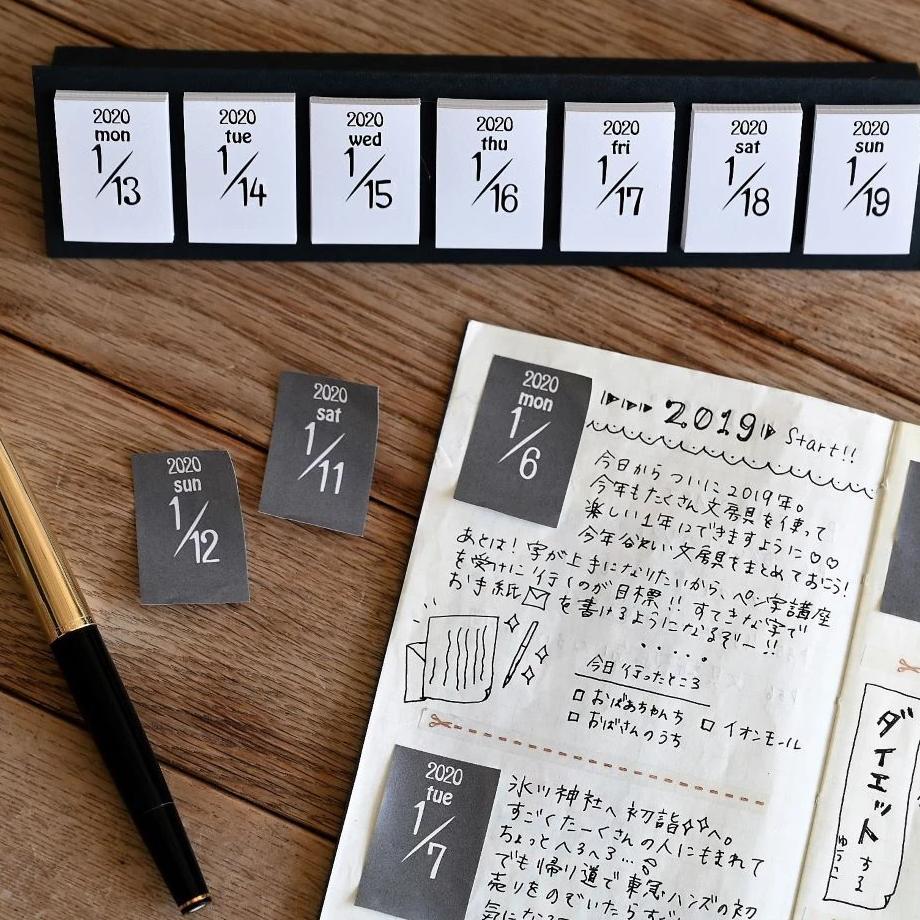 2020
mon
1/13
2020
tue
1/14
2020
wed
1/15
2020
thu
1/16
2020
fri
1/17
2020
sat
1/18
2020
sun
1/19
2020
sat
1/11
2020
sun
1/12
2020
mon
1/6
2019 Start!!
今日からついに2019年。
今年もたくさん文房具を使って
楽しい1年にできますように♡♡
今年欲しい文房具をまとめておこう!
あとは!字が上手になりたいから、ペン字講座
を受けに行くのが目標!!すてきな字で
お手紙を書けるようになるぞー!!
今日行ったところ
□ おばあちゃんち □ イオンモール
□ おばさんのうち
2020
tue
1/7
氷川神社へ初詣へ。
すごくたーくさんの人にもまれて
ちょっとへろへろ…
でも帰り道で東急ハンズの初
売りをのぞいたらすご
気になる
ダイエットする
ゆうこ